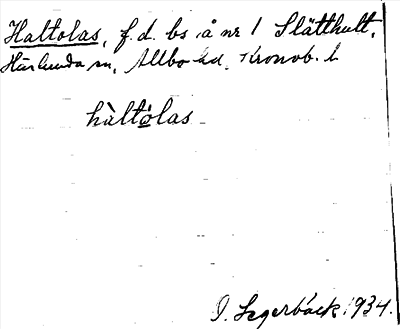 Haltolas, f. d. bs å nr 1 Slätthult,
Härlunda sn, Allbo hd, Kronob. l
hàltòlas
I. Segerbäck 1934.